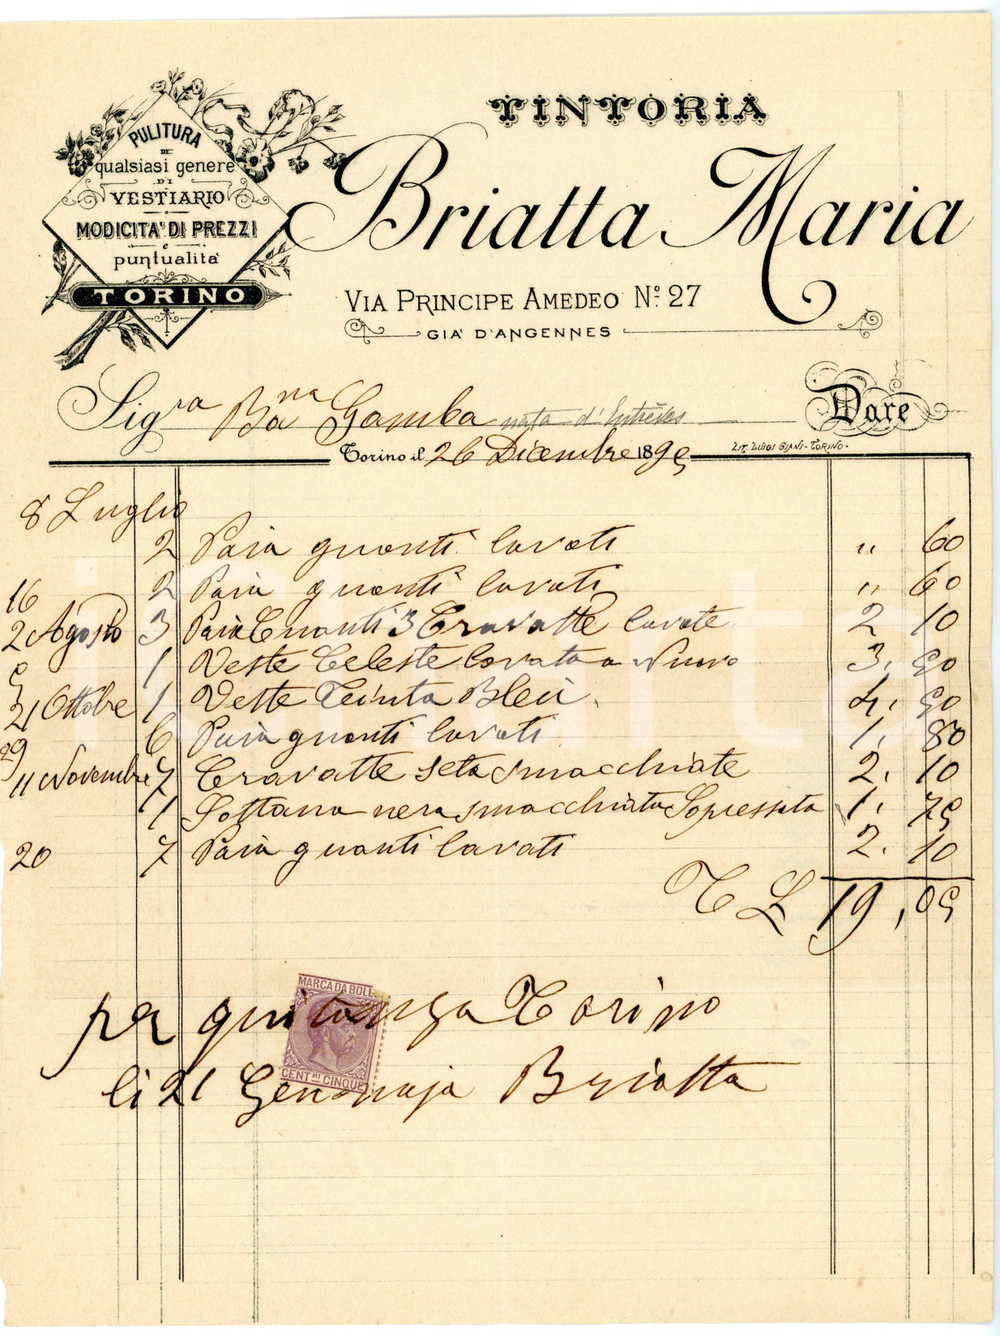 TINTORIA
Briatta Maria
VIA PRINCIPE AMEDEO Nº 27
GIA' D'ANGENNES
PULITURA
DE
qualsiasi genere
DI
VESTIARIO
MODICITA' DI PREZZI
e
puntualita'
TORINO
Sigra Bnna Gamba nata d'
Dare
Torino il 26 Dicembre 1895
LIT. LUIGI GIANI - TORINO.
8 Luglio
2 Paia guanti lavati " 60
16 2 Paia guanti lavati " 60
2 Agosto 3 Paia Guanti 3 Cravatte lavate 2 10
5 1 Veste Celeste lavata a Nuovo 3. 50
21 Ottobre 1 Veste Tinta Bleu. 4. 50
29 6 Paia guanti lavati 1. 80
11 Novembre 7 Cravatte seta smacchiate 2. 10
1 Sottana nera smacchiata Sopressata 1. 75
20 7 Paia guanti lavati 2. 10
T L 19,05
MARCA DA BOLL
CENTmi CINQUE
per quitanza Torino
li 21 Genonaja Briatta